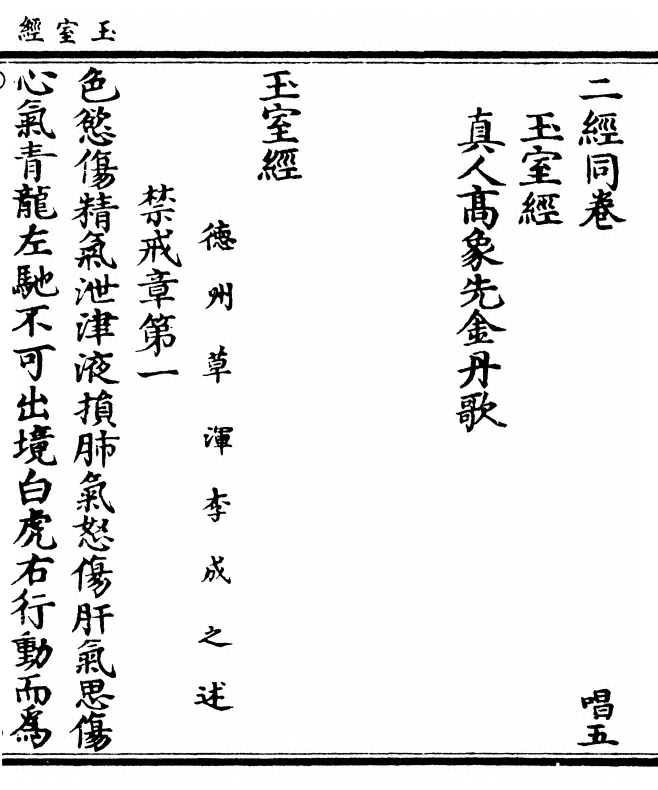 玉室經
二經同卷 唱五
玉室經
真人高象先金丹歌
玉室經
德州草渾李成之述
禁戒章第一
色慾傷精氣泄津液損肺氣怒傷肝氣思傷
心氣青龍左馳不可出境白虎右行動而為